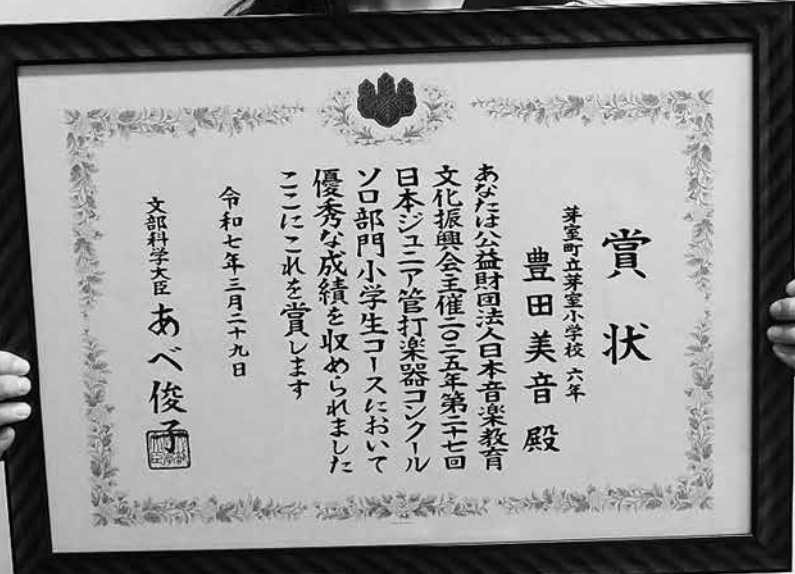 賞状
芽室町立芽室小学校 六年
豊田美音殿
あなたは公益財団法人日本音楽教育
文化振興会主催二〇二五年第二十七回
日本ジュニア管打楽器コンクール
ソロ部門小学生コースにおいて
優秀な成績を収められました
ここにこれを賞します
令和七年三月二十九日
文部科学大臣 あべ俊子